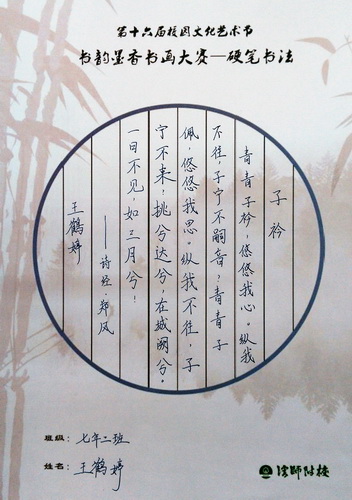 第十六届校园文化艺术节
书韵墨香书画大赛—硬笔书法
子衿
青青子衿，悠悠我心。纵我
不往，子宁不嗣音，青青子
佩，悠悠我思。纵我不往，子
宁不来，挑兮达兮，在城阙兮。
一日不见，如三月兮！
——诗经·郑风
王鹤婷
班级：七年二班
姓名：王鹤婷